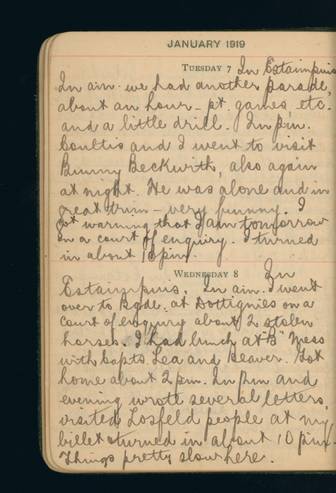 JANUARY 1919
TUESDAY 7 In Estaimpuis
In am. we had another parade,
about an hour - pt. games, etc.
and a little drill. In p.m.
Coultis and I went to visit
Bunny Beckwith, also again
at night. He was alone and in
great trim - very funny. I
got warning that I am tomorrow
on a court of enquiry. I turned
in about p.m.
WEDNESDAY 8 In
Estaimpuis. In am. I went
over to Bgde. at Dottignies on a
court of enquiry about 2 stolen
horses. I had lunch at "B" Mess
with Capts. Lea and Beaver. Got
home about 2 pm. In pm and
evening wrote several letters,
visited Losfeld people at my
billet & turned in about 10 pm.
Things pretty slow here.